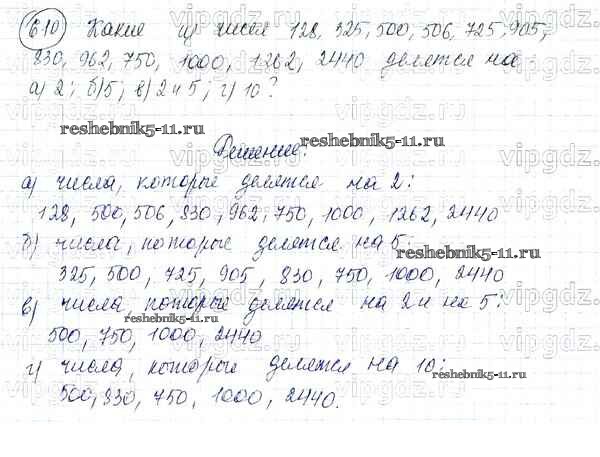 610 Какие из чисел 128, 325, 500, 506, 725, 905,
830, 962, 750, 1000, 1262, 2440 делятся на
а) 2; б) 5; в) 2 и 5; г) 10?
reshebnik5-11.ru
reshebnik5-11.ru
Решение:
а) числа, которые делятся на 2:
128, 500, 506, 830, 962, 750, 1000, 1262, 2440
б) числа, которые делятся на 5:
reshebnik5-11.ru
325, 500, 725, 905, 830, 750, 1000, 2440
в) числа, которые делятся на 2 и на 5:
reshebnik5-11.ru
500, 750, 1000, 2440
г) числа, которые делятся на 10:
reshebnik5-11.ru
500, 830, 750, 1000, 2440.
vipgdz.
vipgdz.
vipgdz.